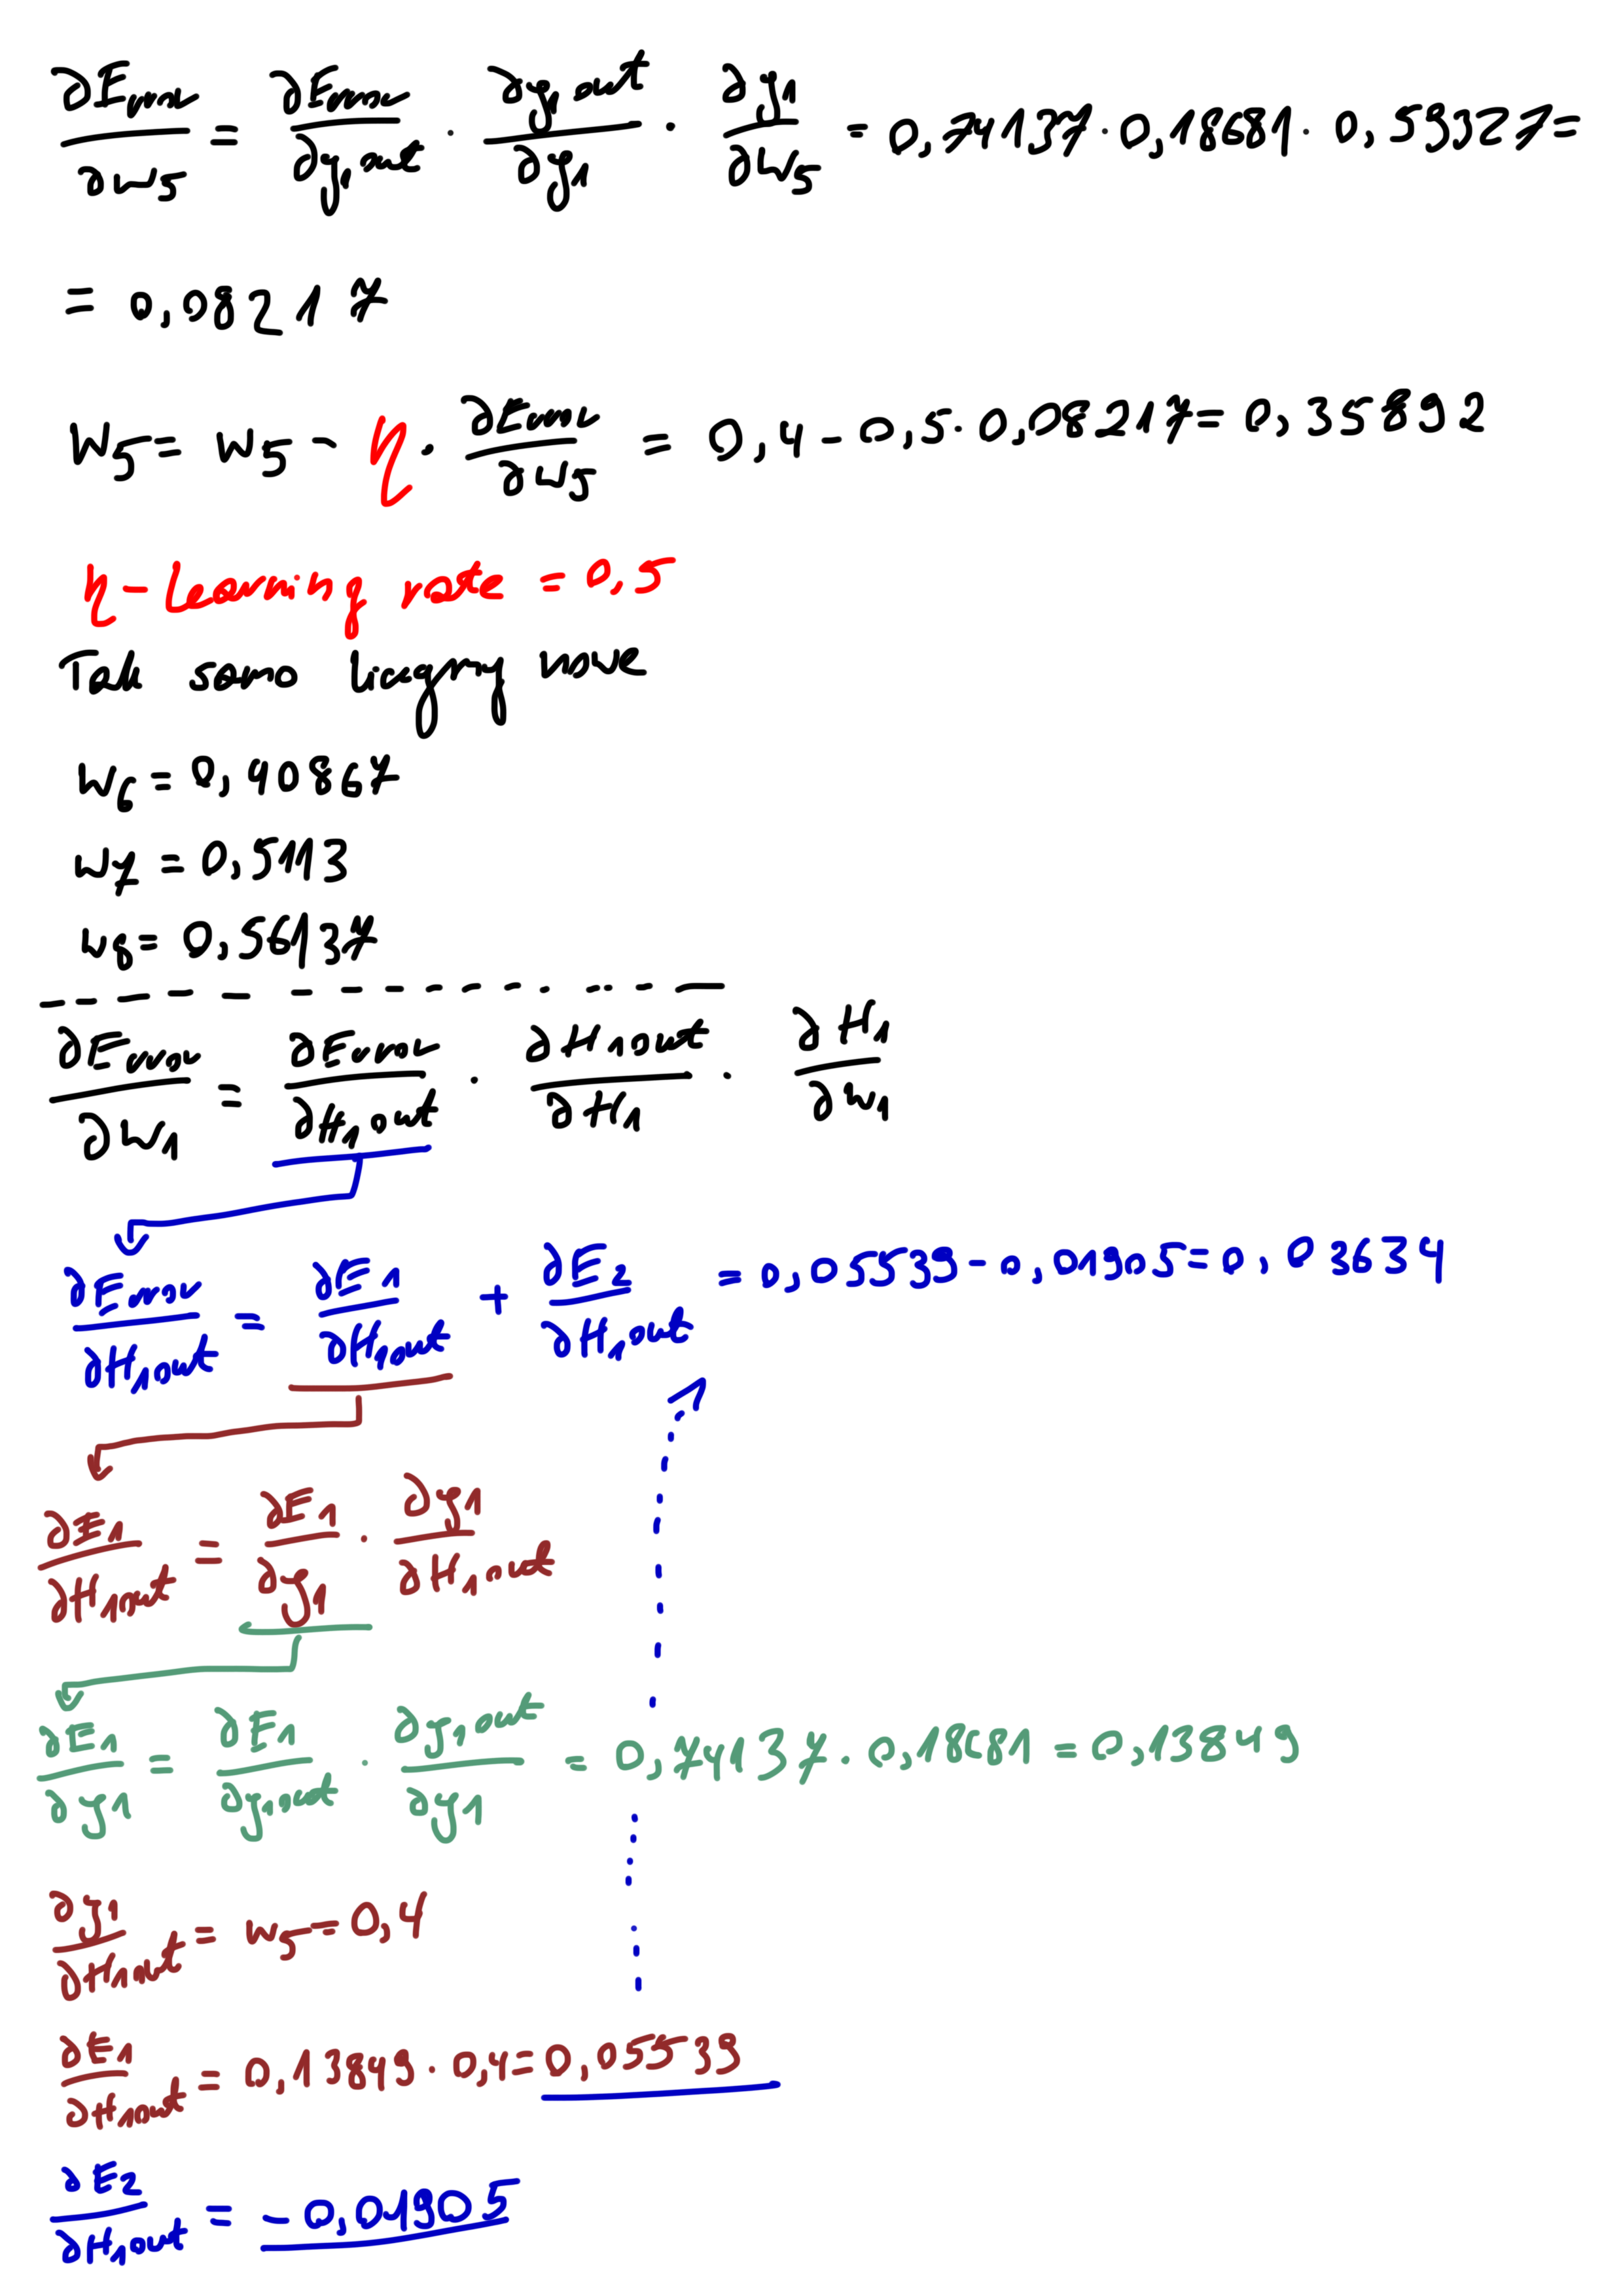 ∂Error/∂w5 = ∂Error/∂y1out · ∂y1out/∂y1 · ∂y1/∂w5 = 0,74137 · 0,18681 · 0,59327 =
= 0,08217
W5 = w5 - η · ∂Error/∂w5 = 0,4 - 0,5 · 0,08217 = 0,35892
η - Learning rate = 0,5
Tak samo liczymy nowe
w6 = 0,40867
w7 = 0,5113
w8 = 0,56137
∂Error/∂w1 = ∂Error/∂H1out · ∂H1out/∂H1 · ∂H1/∂w1
∂Error/∂H1out = ∂E1/∂H1out + ∂E2/∂H1out = 0,05539 - 0,01905 = 0,03634
∂E1/∂H1out = ∂E1/∂y1 · ∂y1/∂H1out
∂E1/∂y1 = ∂E1/∂y1out · ∂y1out/∂y1 = 0,74137 · 0,18681 = 0,13849
∂y1/∂H1out = w5 = 0,4
∂E1/∂H1out = 0,13849 · 0,4 = 0,05539
∂E2/∂H1out = -0,01905